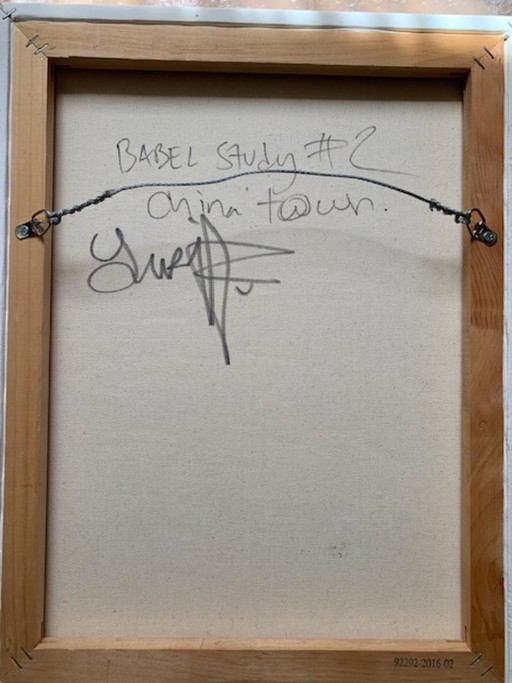 BABEL Study #2
China town.
92292-2016-02